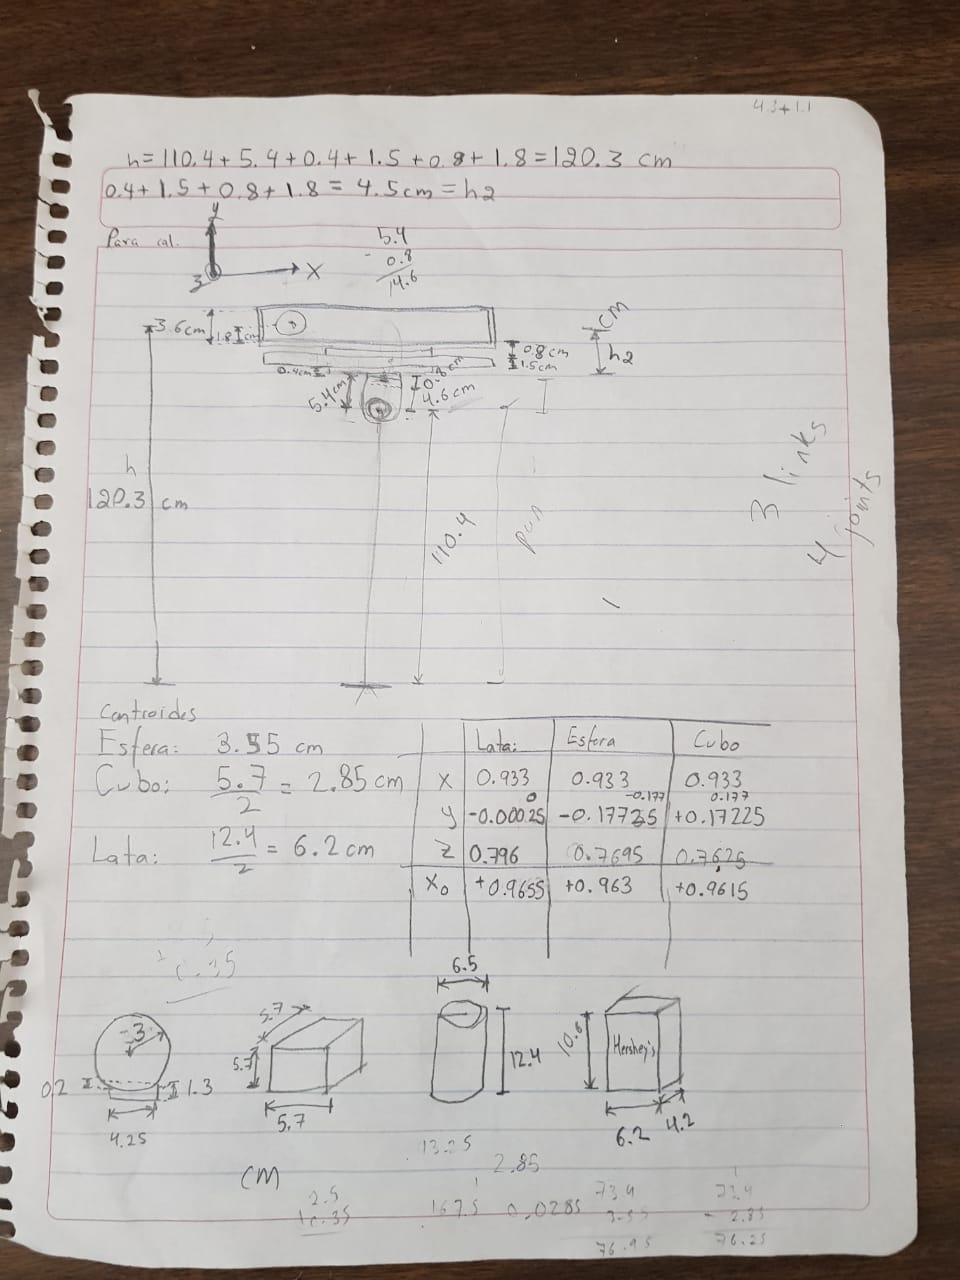 4.3+1.1
h=110.4+5.4+0.4+1.5+0.8+1.8=120.3 cm
0.4+1.5+0.8+1.8=4.5cm=h2
Para cal.
y
x
3
5.4
- 0.8
14.6
3.6cm
1.8 cm
cm
h2
0.8 cm
1.5cm
0.4cm
5.4cm
4.6cm
h
120.3 cm
110.4
3 links
4 joints
Centroides
Esfera: 3.55 cm
Cubo: 5.7/2 = 2.85 cm
Lata: 12.4/2 = 6.2 cm
Lata: Esfera Cubo
X 0.933 0.933 0.933
0 -0.177 0.177
y -0.00025 -0.17725 +0.17225
Z 0.796 0.7695 0.7625
X0 +0.9655 +0.963 +0.9615
3
0.2
1.3
4.25
5.7
5.7
5.7
6.5
12.4
10.6
Hershey's
6.2
4.2
cm
13.25
2.85
2.5
167.5
0.0285
73.4
3.55
76.95
73.4
- 2.85
76.25